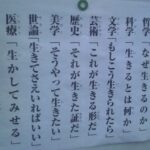 哲学「なぜ生きるのか」
科学「生きるとは何か」
文学「もしこう生きられたら」
芸術「これが生きる形だ」
歴史「それが生きた証だ」
美学「そうやって生きたい」
世論「生きてさえいればいい」
医療「生かしてみせる」